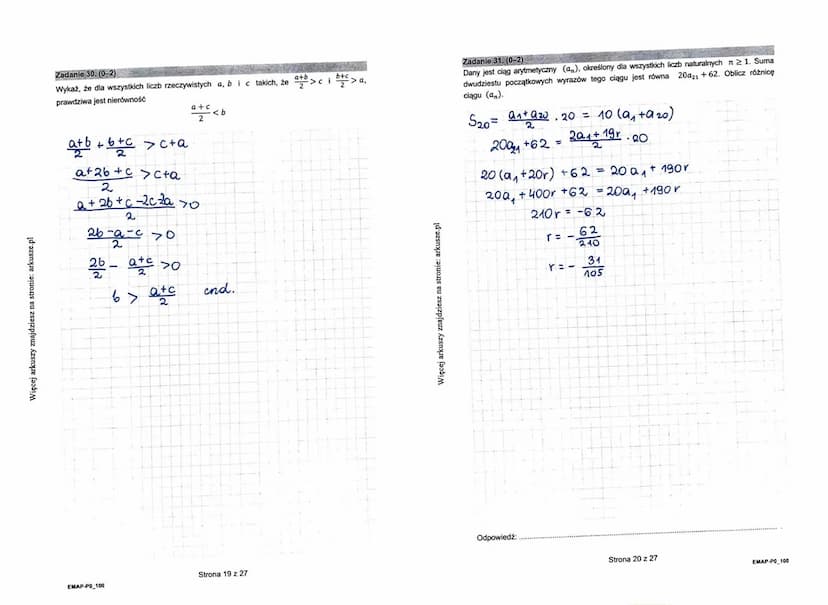 Zadanie 30. (0–2)
Wykaż, że dla wszystkich liczb rzeczywistych a, b i c takich, że (a+b)/2 > c i (b+c)/2 > a,
prawdziwa jest nierówność
(a+c)/2 < b
(a+b)/2 + (b+c)/2 > c+a
(a+2b+c)/2 > c+a
(a+2b+c-2c-2a)/2 > 0
(2b-a-c)/2 > 0
2b/2 - (a+c)/2 > 0
b > (a+c)/2 cnd.
Więcej arkuszy znajdziesz na stronie: arkusze.pl
Strona 19 z 27
EMAP-P0_100
Zadanie 31. (0–2)
Dany jest ciąg arytmetyczny (aₙ), określony dla wszystkich liczb naturalnych n ≥ 1. Suma
dwudziestu początkowych wyrazów tego ciągu jest równa 20a₂₁ + 62. Oblicz różnicę
ciągu (aₙ).
S₂₀ = (a₁+a₂₀)/2 · 20 = 10(a₁+a₂₀)
20a₂₁ + 62 = (2a₁+19r)/2 · 20
20(a₁+20r) + 62 = 20a₁ + 190r
20a₁ + 400r + 62 = 20a₁ + 190r
210r = -62
r = -62/210
r = -31/105
Więcej arkuszy znajdziesz na stronie: arkusze.pl
Odpowiedź:
Strona 20 z 27
EMAP-P0_100